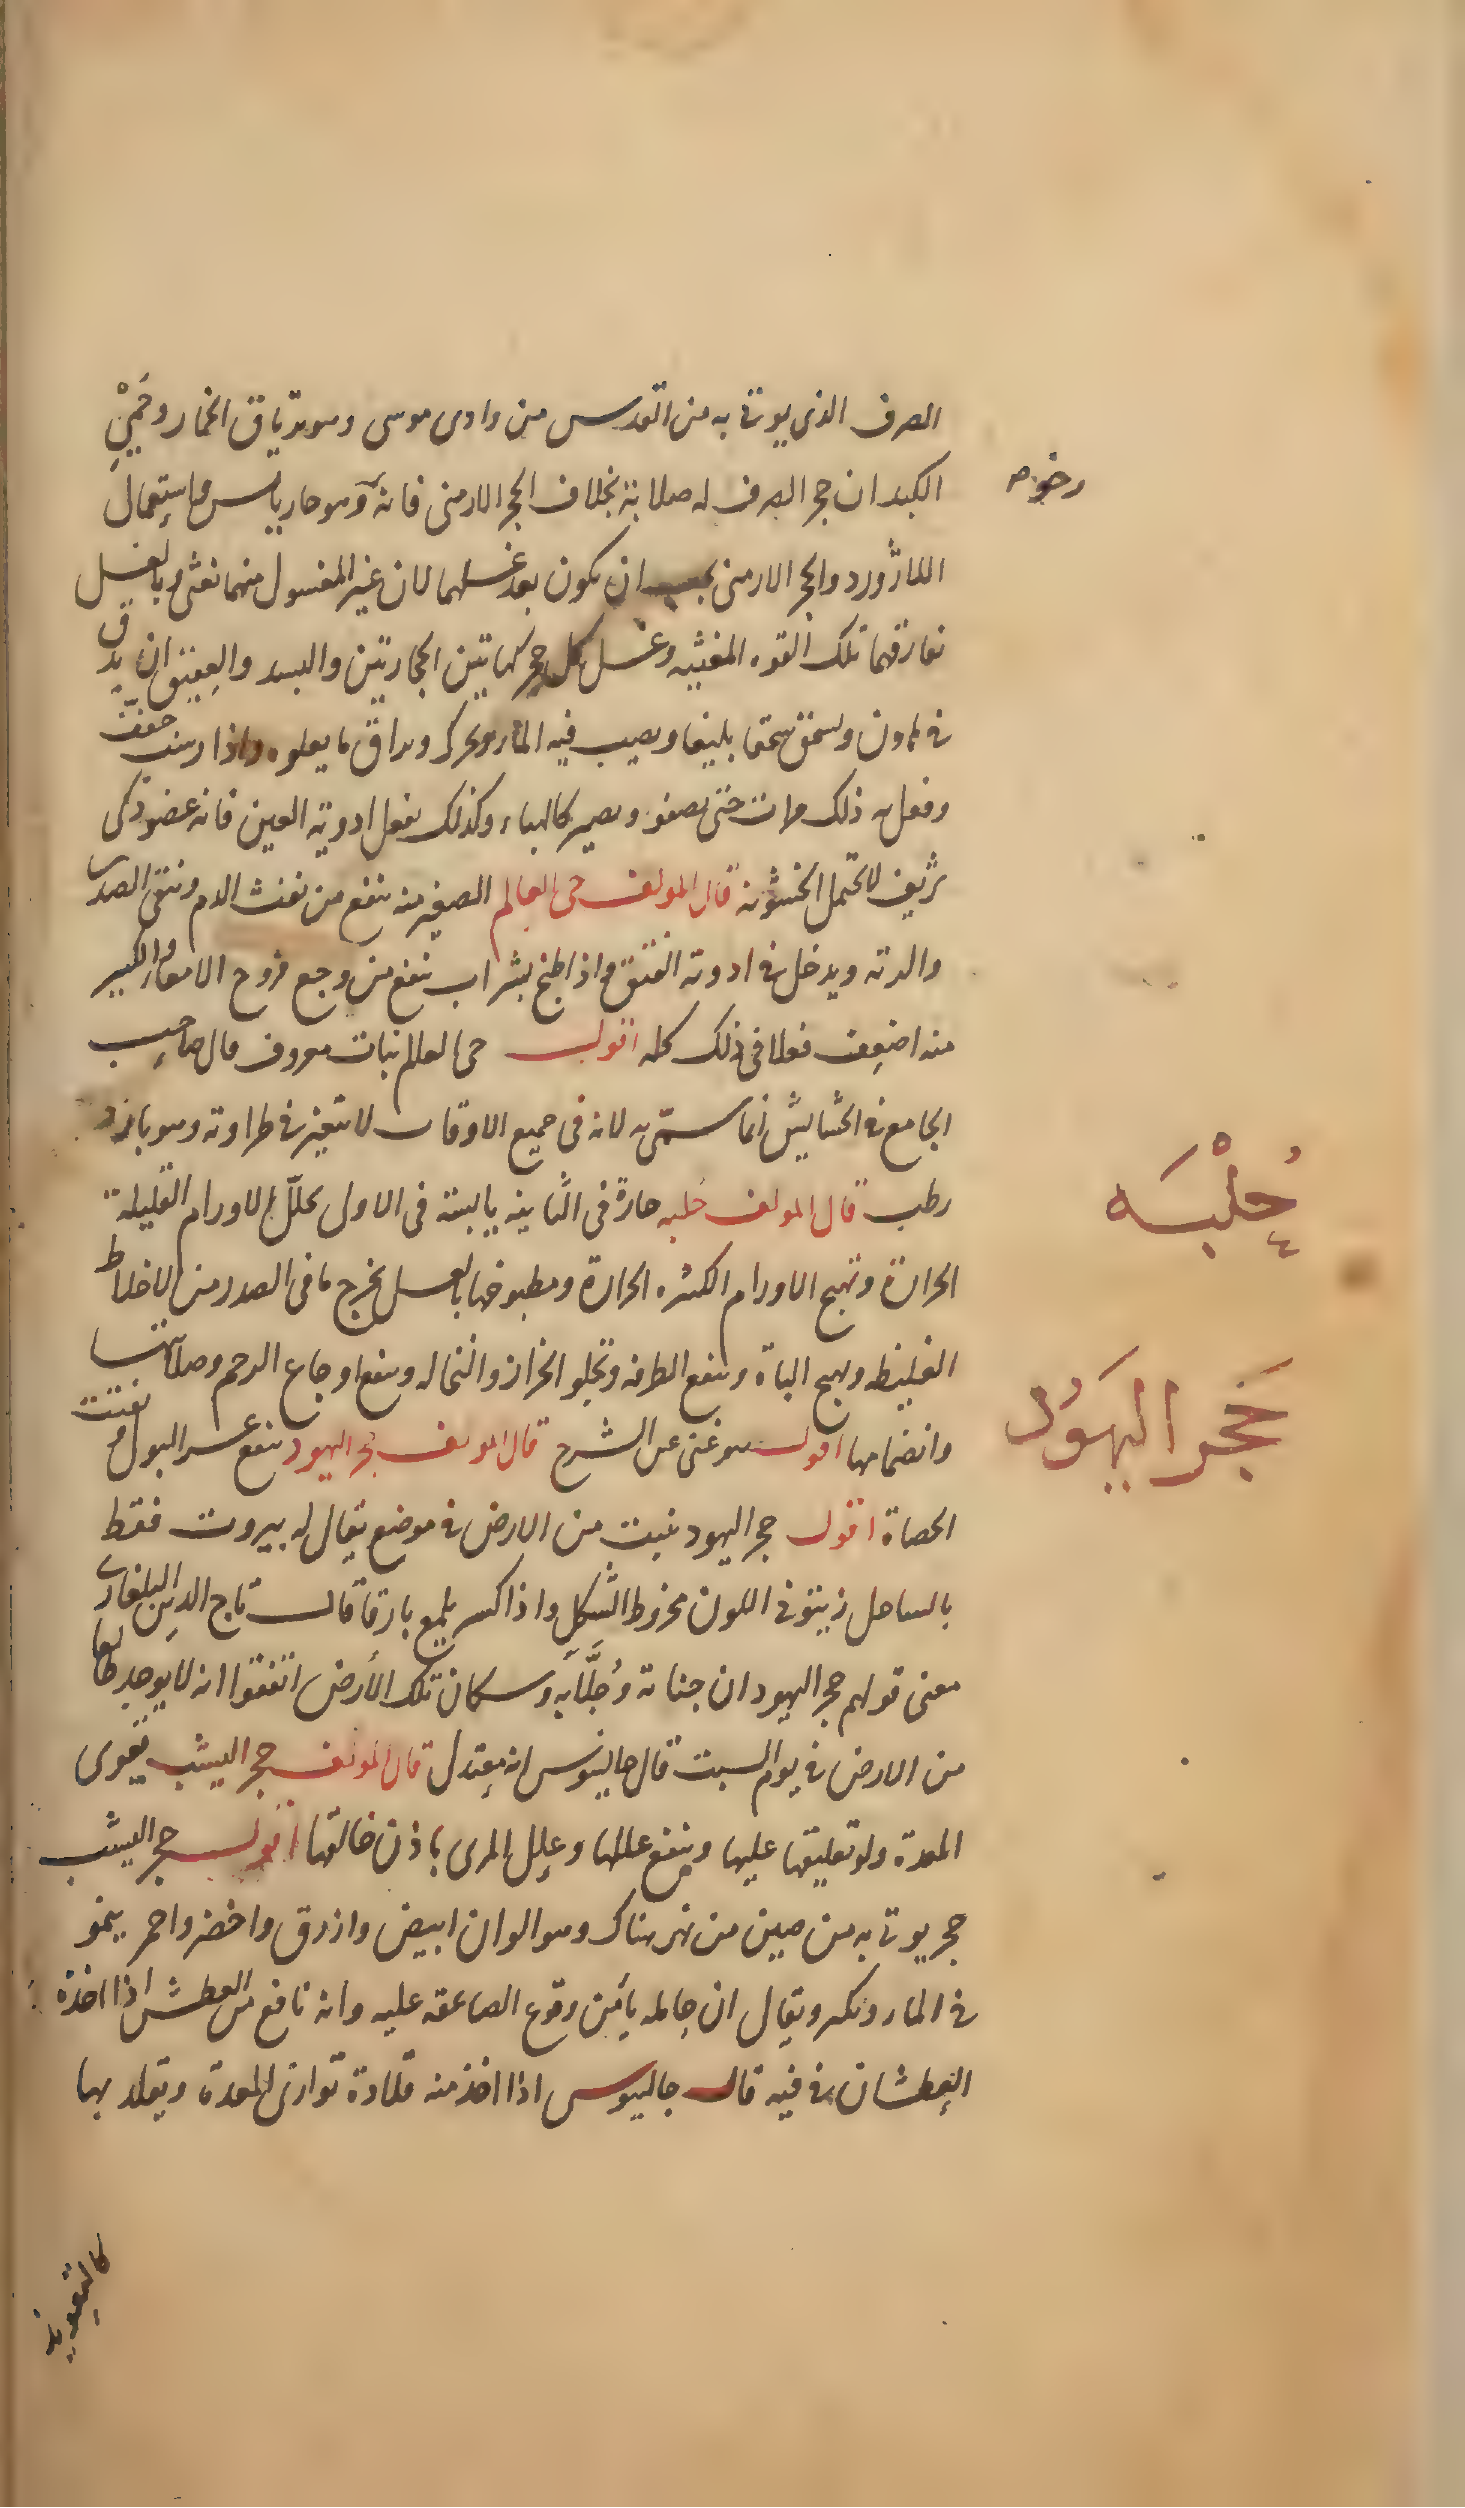 الصرف الذى يوتى به من القدس من وادى موسى وهو ترياق الخمار وحُمَّىٰ
الكبد ان حجر الصرف له صلابة بخلاف الحجر الارمنى فانه وهو حار يابس واستعمال
رخوه
اللازورد والحجر الارمنى يجب ان يكون بعد غسلهما لان غير المغسول منهما نغثى وبالغسل
تفارقهما تلك القوه المغثيه وغسل كل حجر كهاتين الحجارتين والبسد والعقيق ان يدق
فى هاون ويسحق سحقا بليغا ويصب فيه الماء ويحرك ويراق ما يعلوه واذا رسب جفف
وفعل به ذلك مرات حتى يصفو ويصير كالهباء وكذلك يفعل ادوية العين فانه عضو ذكى
شريف لا يحتمل الخشونة قال المولف حى العالم الصغير منه ينفع من نفث الدم وينقى الصدر
والرئه ويدخل فى ادوية الفتق واذا طبخ بشراب ينفع من وجع قروح الامعاء والكبير
منه اضعف فعلا فى ذلك كله اقول حى العالم نبات معروف قال صاحب
الجامع فى الحشايش انما سمّى به لانه فى جميع الاوقات لا يتغير فى طراوته وهو بارد
رطب قال المولف حُلبه حارة فى الثانيه يابسة فى الاول يحلّل الاورام القليلة
حُلْبَه
الحرارة وتهيج الاورام الكثيره الحرارة ومطبوخها بالعسل يخرج ما فى الصدر من الاخلاط
الغليظه ويهيج الباة وينفع الطرفه وتجلو الحزاز والنخاله وينفع اوجاع الرحم وصلابتها
وانضمامها اقول هو غنى عن الشرح قال المولف حجر اليهود ينفع عسر البول وتفتت
حَجَر اليَهَوُد
الحصاة اقول حجر اليهود ينبت من الارض فى موضع يقال له بيروت فقط
بالساحل زيتونى اللون مخروط الشكل واذا كسر يلمع بارقا قال تاج الدين البلغارى
معنى قولهم حجر اليهود ان جناته وجُلَّابَه وسكان تلك الأرض اتفقوا انه لا يوجد طالعا
من الارض فى يوم السبت قال جالينوس انه معتدل قال المولف حجر اليشب تقوى
المعدة ولو تعليقها عليها وينفع عللها وعلل المرى باذن خالقها اقول حجر اليشب
حجر يوتى به من صين من نهر هناك وهو الوان ابيض وازرق واخضر واحمر ينمو
فى الماء ويكبر ويقال ان حامله يأمن وقوع الصاعقه عليه وانه نافع من العطش اذا اخذه
العطشان فى فيه قال جالينوس اذا اخذ منه قلادة توازى المعدة ويقلد بها
كالتعويذ